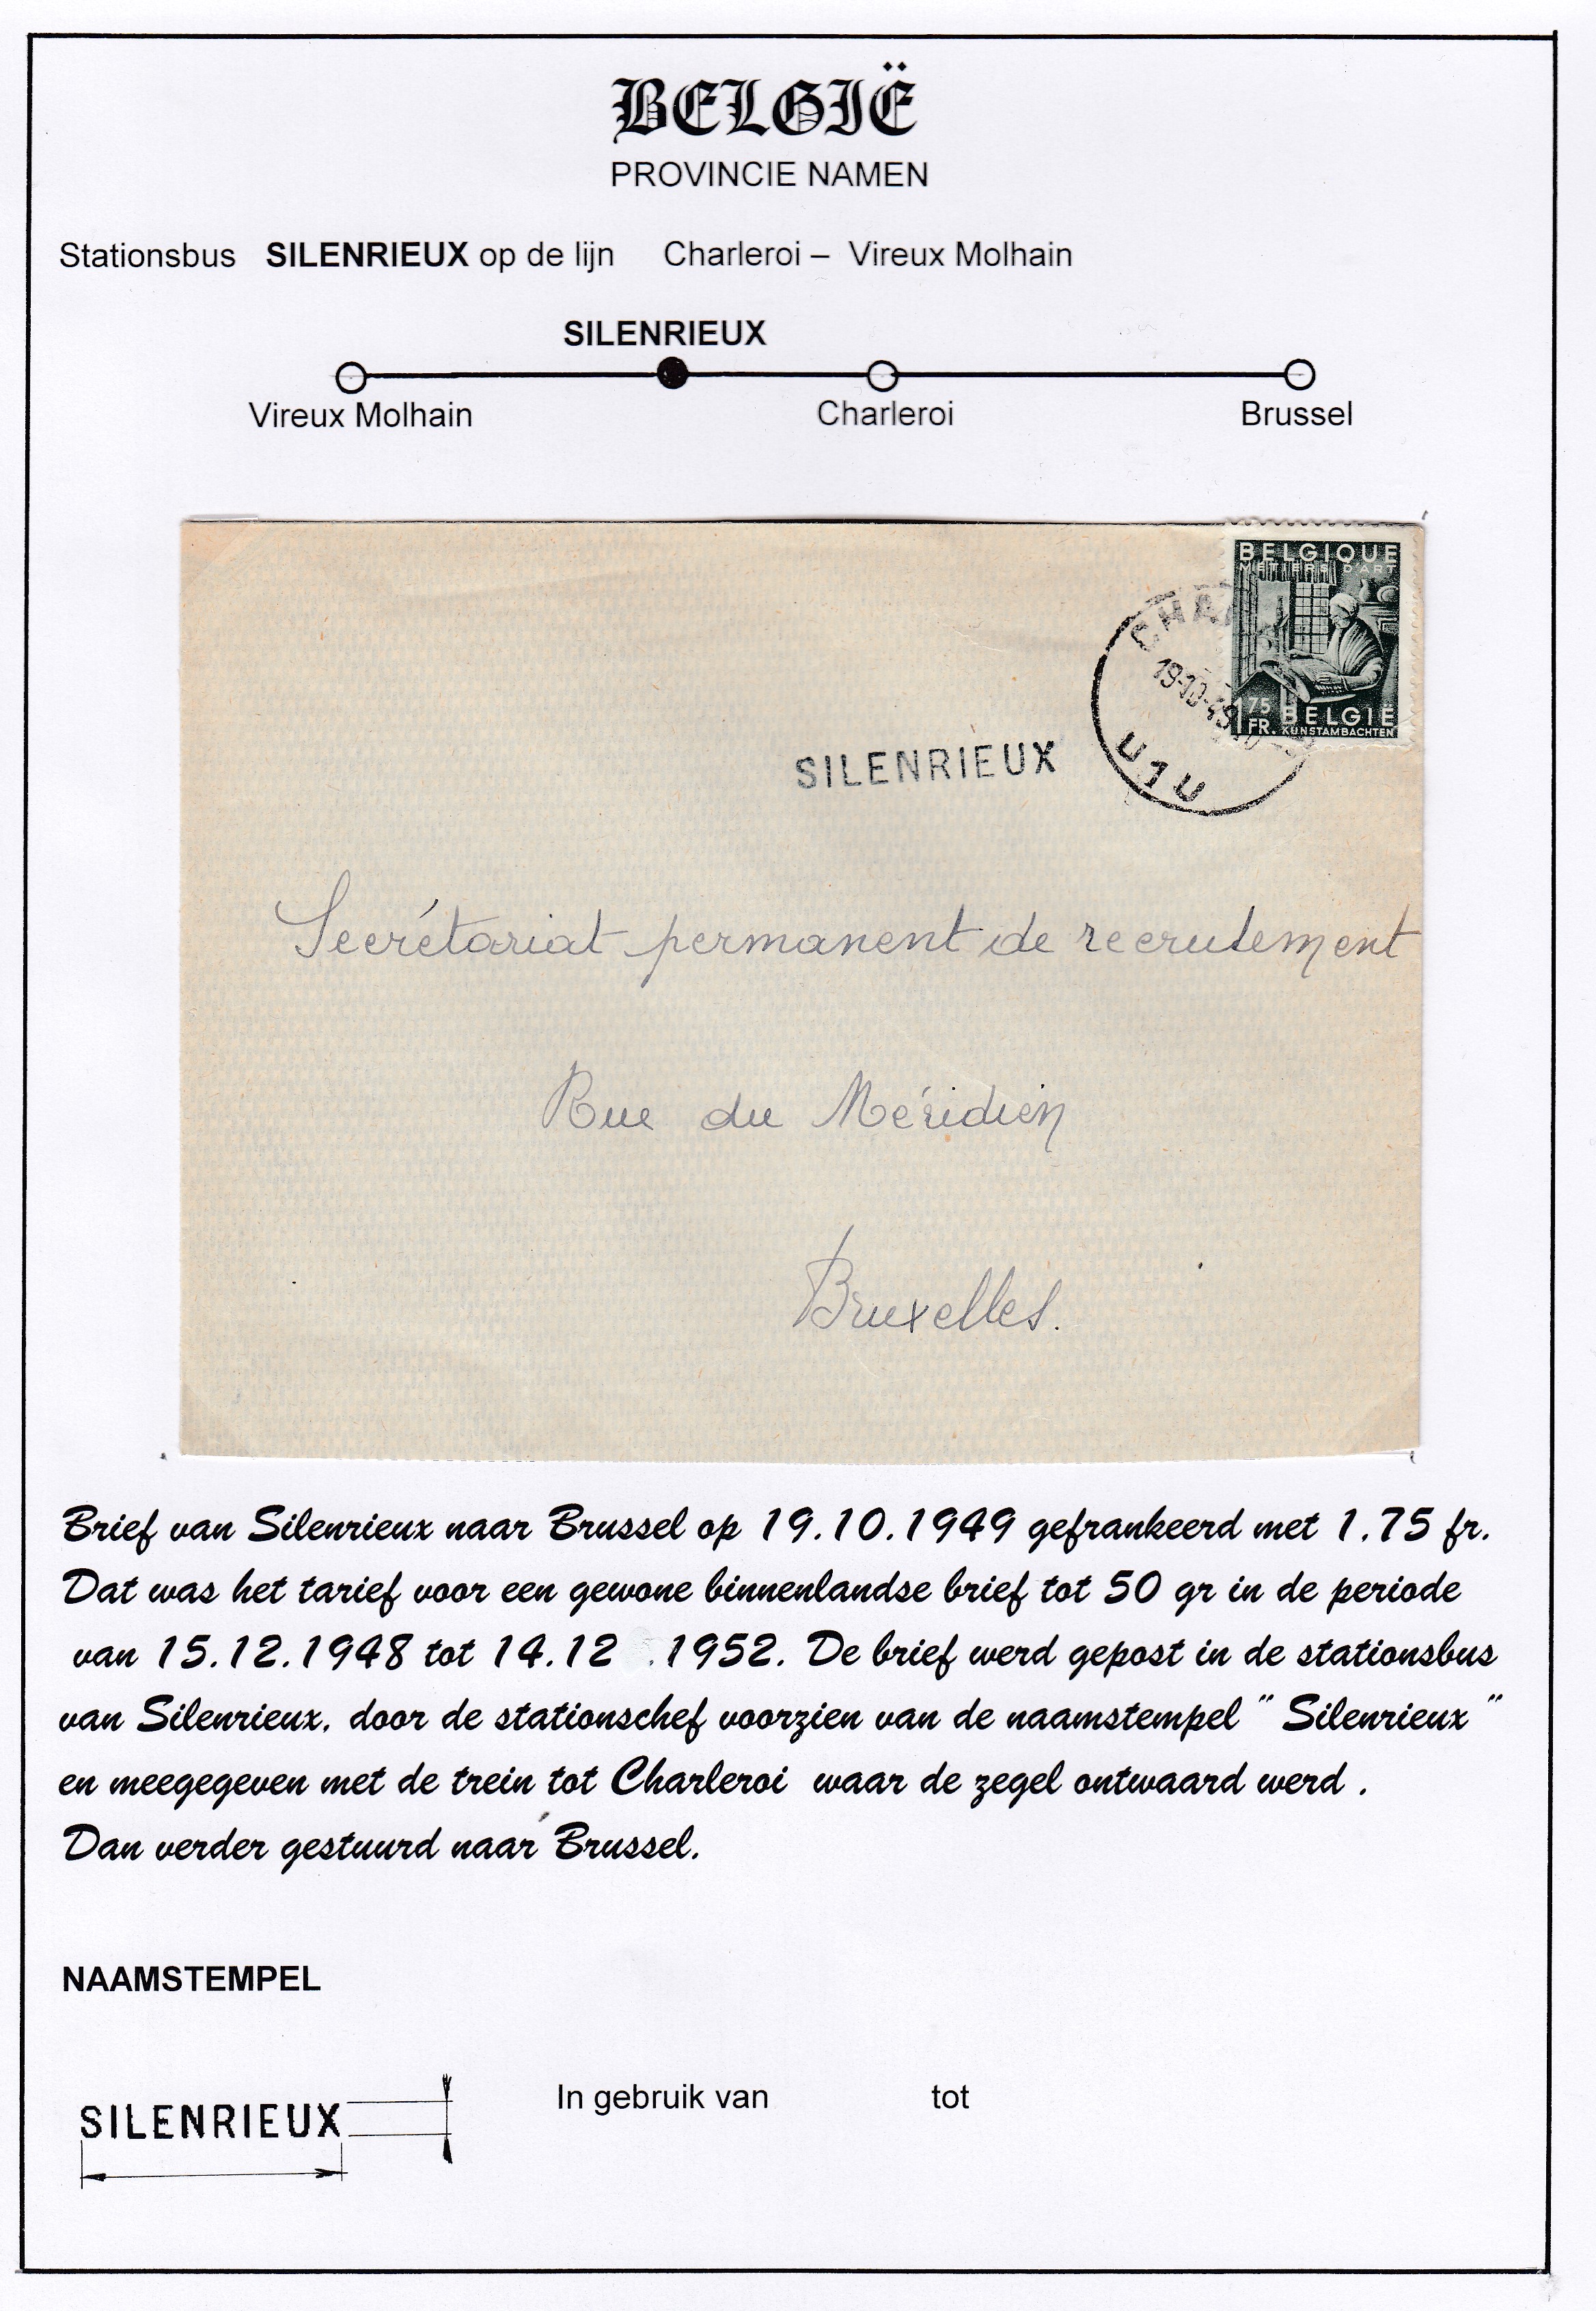 BELGIË
PROVINCIE NAMEN
Stationsbus SILENRIEUX op de lijn Charleroi – Vireux Molhain
SILENRIEUX
Vireux Molhain Charleroi Brussel
BELGIQUE
METIERS D'ART
1 75 FR. BELGIË
KUNSTAMBACHTEN
19-10-49
U1U
SILENRIEUX
Secrétariat permanent de recrutement
Rue du Méridien
Bruxelles.
Brief van Silenrieux naar Brussel op 19.10.1949 gefrankeerd met 1.75 fr.
Dat was het tarief voor een gewone binnenlandse brief tot 50 gr in de periode
van 15.12.1948 tot 14.12 .1952. De brief werd gepost in de stationsbus
van Silenrieux, door de stationschef voorzien van de naamstempel " Silenrieux "
en meegegeven met de trein tot Charleroi waar de zegel ontwaard werd .
Dan verder gestuurd naar Brussel.
NAAMSTEMPEL
SILENRIEUX
In gebruik van tot